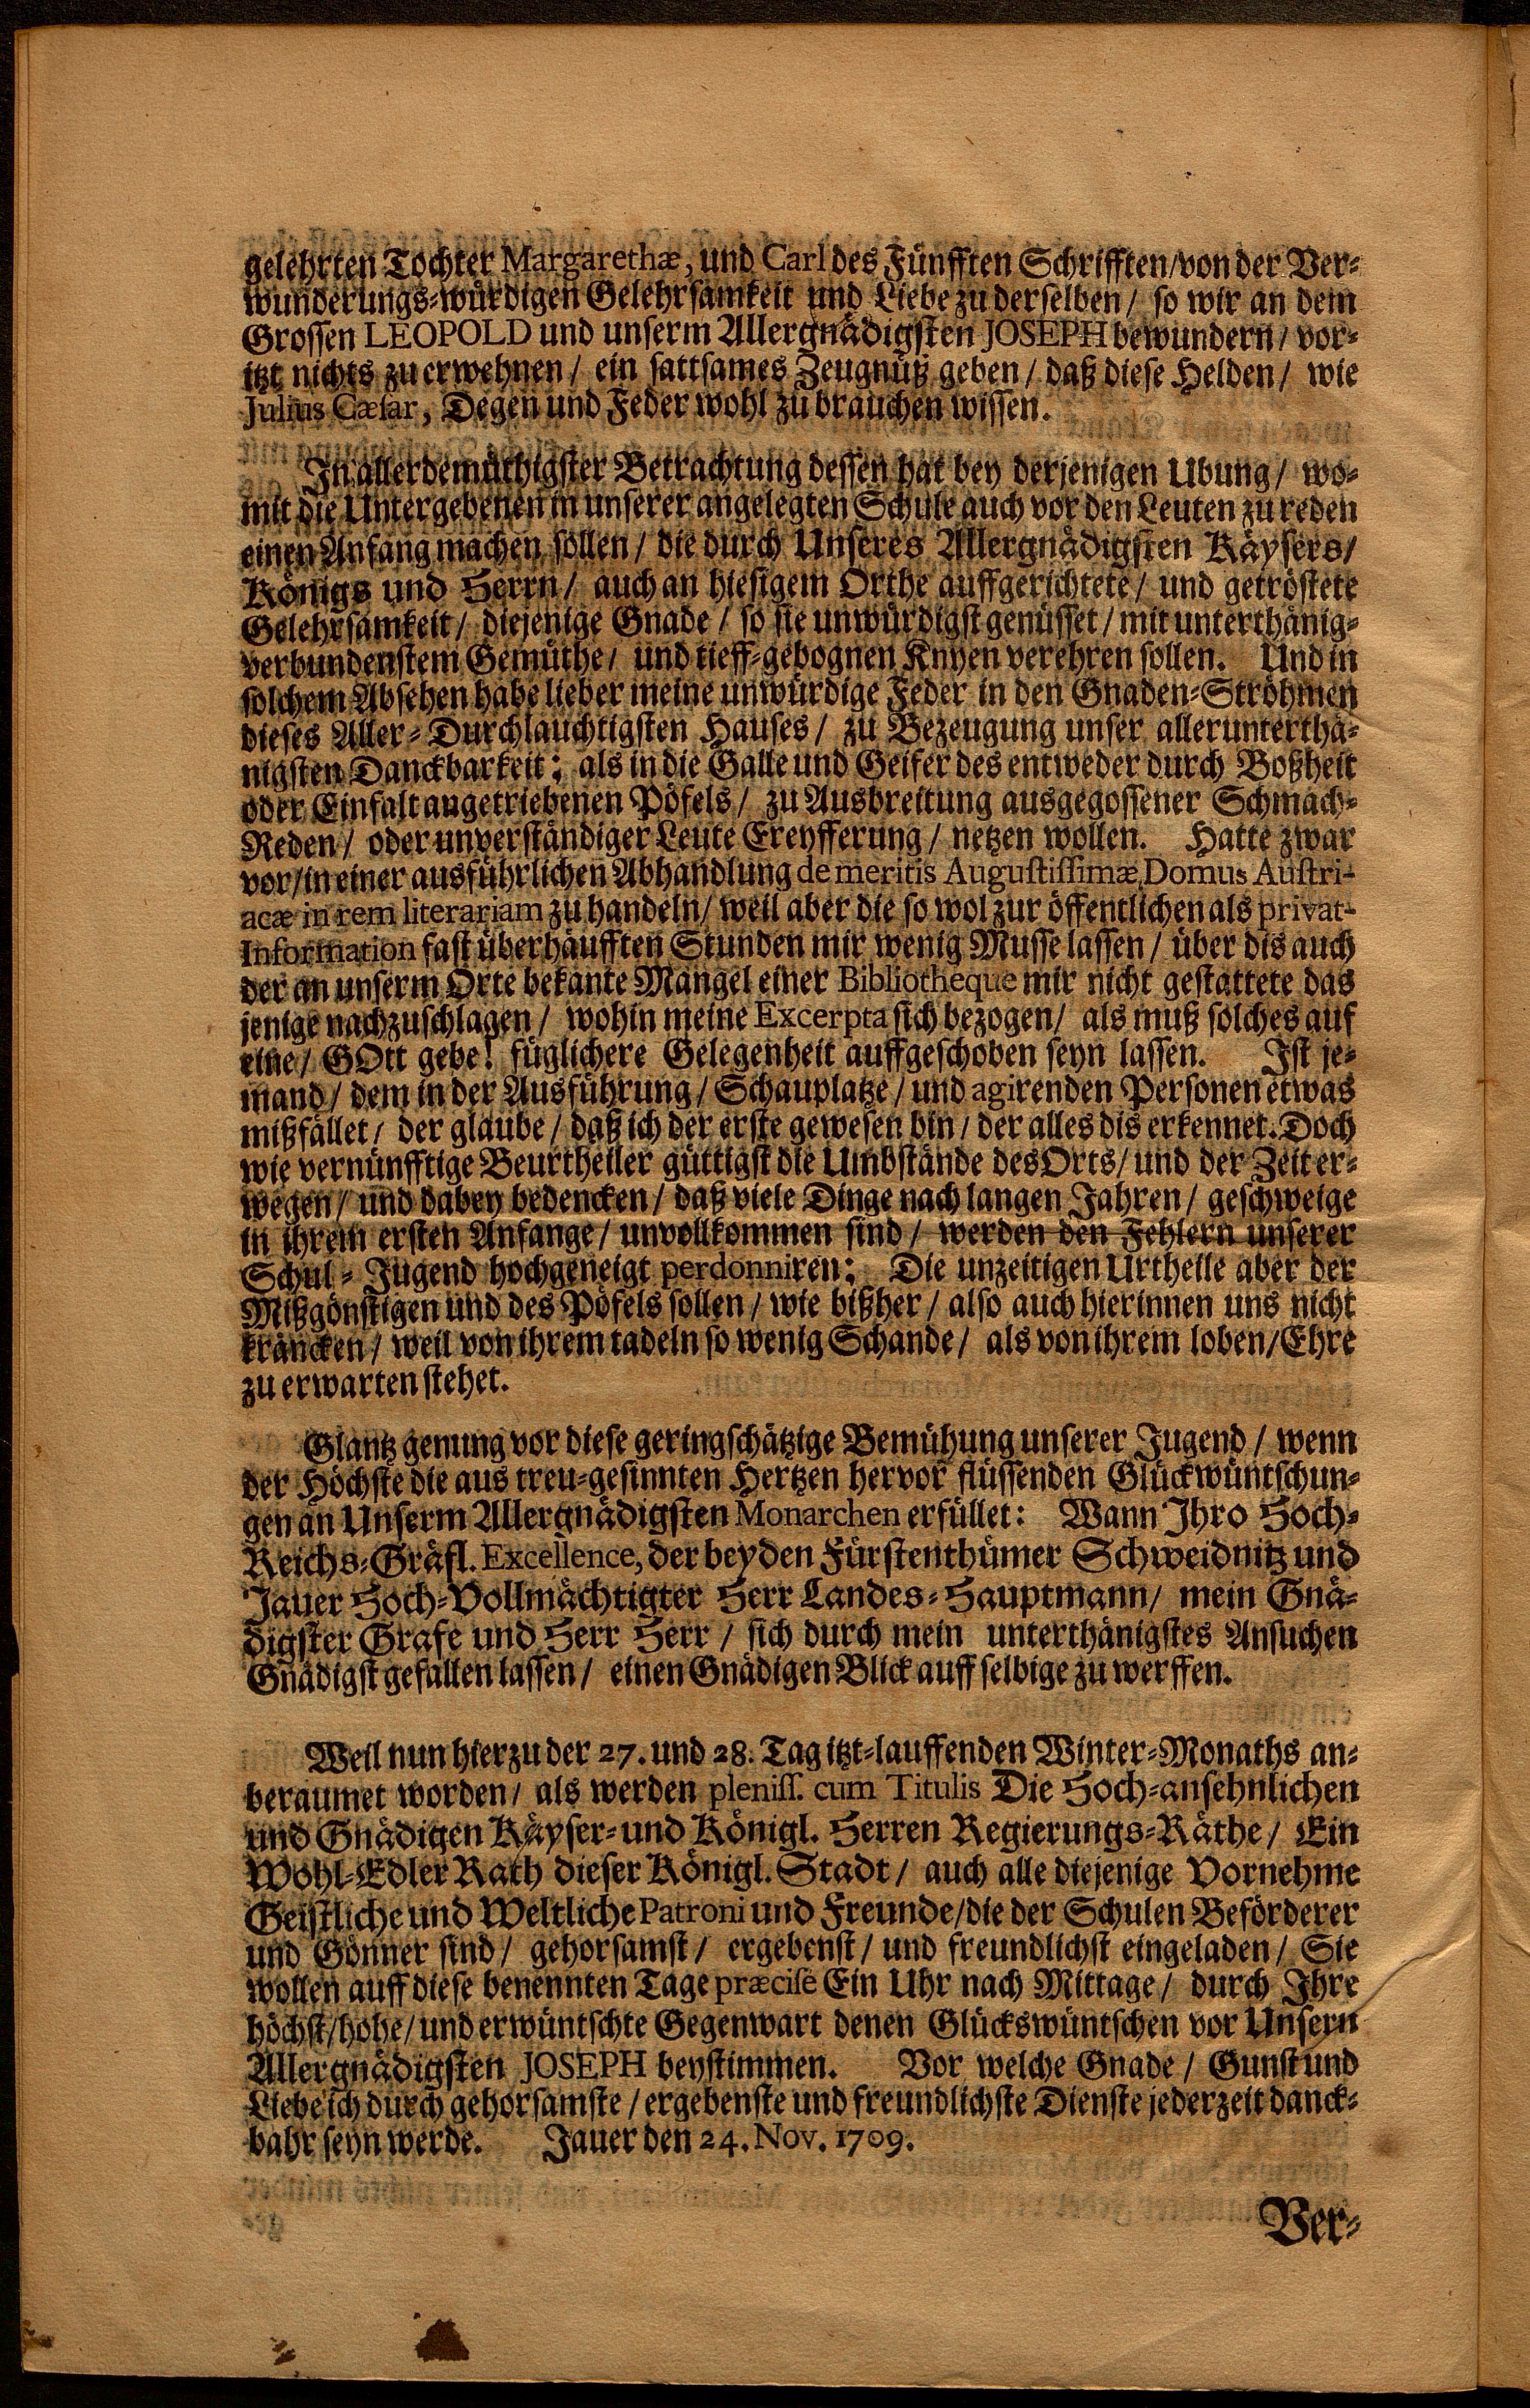 gelehrten Tochter Margarethæ, und Carl des Fünfften Schrifften/von der Ver-
wunderungs-würdigen Gelehrsamkeit und Liebe zu derselben/ so wir an dem
Grossen LEOPOLD und unserm Allergnädigsten JOSEPH bewundern/ vor-
itzt nichts zu erwehnen/ ein sattsames Zeugnüß geben/ daß diese Helden/ wie
Julius Cæsar, Degen und Feder wohl zu brauchen wissen.
In allerdemüthigster Betrachtung dessen hat bey derjenigen Ubung/ wo-
mit die Untergebenen in unserer angelegten Schule auch vor den Leuten zu reden
einen Anfang machen sollen/ die durch Unseres Allergnädigsten Käysers/
Königs und Herrn/ auch an hiesigem Orthe auffgerichtete/ und getröstete
Gelehrsamkeit/ diejenige Gnade/ so sie unwürdigst genüsset/ mit unterthänig-
verbundenstem Gemüthe/ und tieff-gebognen Knyen verehren sollen. Und in
solchem Absehen habe lieber meine unwürdige Feder in den Gnaden-Ströhmen
dieses Aller-Durchlauchtigsten Hauses/ zu Bezeugung unser allerunterthä-
nigsten Danckbarkeit; als in die Galle und Geifer des entweder durch Boßheit
oder Einfalt angetriebenen Pöfels/ zu Ausbreitung ausgegossener Schmach-
Reden/ oder unverständiger Leute Ereyfferung/ netzen wollen. Hatte zwar
vor/in einer ausführlichen Abhandlung de meritis Augustissimæ Domus Austri-
acæ in rem literariam zu handeln/ weil aber die so wol zur öffentlichen als privat-
Information fast überhäufften Stunden mir wenig Musse lassen/ über dis auch
der an unserm Orte bekante Mangel einer Bibliotheque mir nicht gestattete das
jenige nachzuschlagen/ wohin meine Excerpta sich bezogen/ als muß solches auf
eine/ GOtt gebe! füglichere Gelegenheit auffgeschoben seyn lassen. Ist je-
mand/ dem in der Ausführung/ Schauplatze/ und agirenden Personen etwas
mißfället/ der glaube/ daß ich der erste gewesen bin/ der alles dis erkennet. Doch
wie vernünfftige Beurtheiler güttigst die Umbstände des Orts/ und der Zeit er-
wegen/ und dabey bedencken/ daß viele Dinge nach langen Jahren/ geschweige
in ihrem ersten Anfange/ unvollkommen sind/ werden den Fehlern unserer
Schul-Jugend hochgeneigt perdonniren; Die unzeitigen Urtheile aber der
Mißgönstigen und des Pöfels sollen/ wie bißher/ also auch hierinnen uns nicht
kräncken/ weil von ihrem tadeln so wenig Schande/ als von ihrem loben/Ehre
zu erwarten stehet.
Glantz genung vor diese geringschätzige Bemühung unserer Jugend/ wenn
der Höchste die aus treu-gesinnten Hertzen hervor flüssenden Glückwüntschun-
gen an Unserm Allergnädigsten Monarchen erfüllet: Wann Ihro Hoch-
Reichs-Gräfl. Excellence, der beyden Fürstenthümer Schweidnitz und
Jauer Hoch-Vollmächtigter Herr Landes-Hauptmann/ mein Gnä-
digster Grafe und Herr Herr/ sich durch mein unterthänigstes Ansuchen
Gnädigst gefallen lassen/ einen Gnädigen Blick auff selbige zu werffen.
Weil nun hierzu der 27. und 28. Tag itzt-lauffenden Winter-Monaths an-
beraumet worden/ als werden pleniss. cum Titulis Die Hoch-ansehnlichen
und Gnädigen Käyser-und Königl. Herren Regierungs-Räthe/ Ein
Wohl-Edler Rath dieser Königl. Stadt/ auch alle diejenige Vornehme
Geistliche und Weltliche Patroni und Freunde/die der Schulen Beförderer
und Gönner sind/ gehorsamst/ ergebenst/ und freundlichst eingeladen/ Sie
wollen auff diese benennten Tage præcise Ein Uhr nach Mittage/ durch Ihre
höchst/hohe/und erwüntschte Gegenwart denen Glückswüntschen vor Unsern
Allergnädigsten JOSEPH beystimmen. Vor welche Gnade/ Gunst und
Liebe ich durch gehorsamste/ ergebenste und freundlichste Dienste jederzeit danck-
bahr seyn werde. Jauer den 24. Nov. 1709.
Ver-